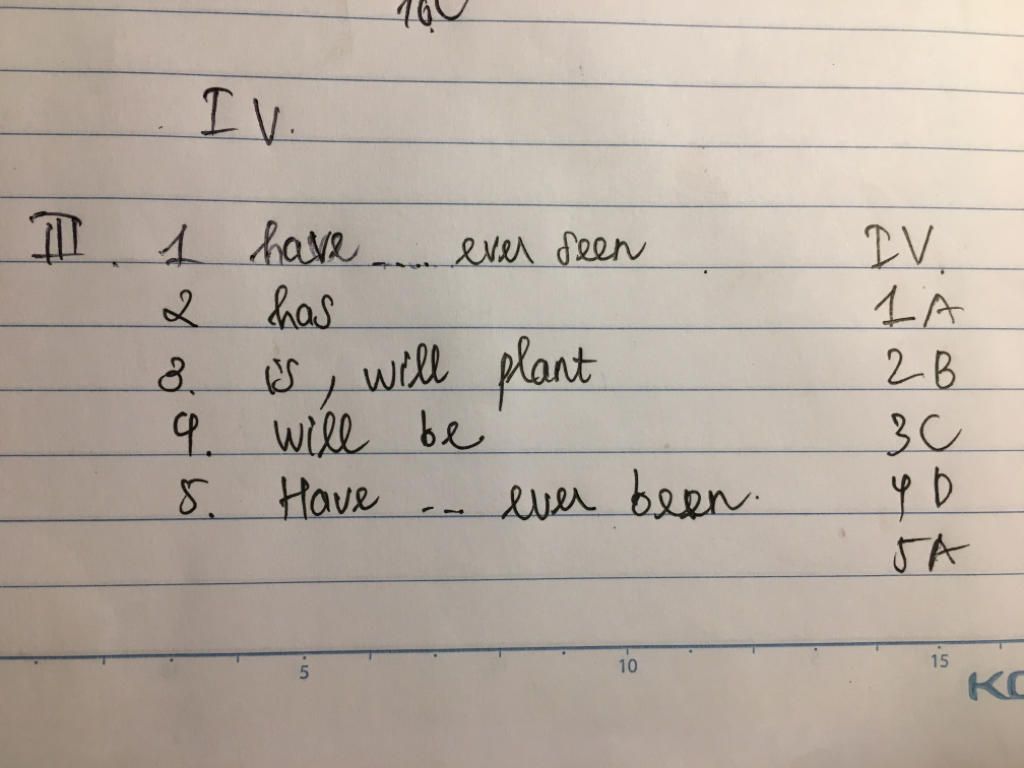 16.
IV.
III. 1 have .... ever seen
2 has
3. is, will plant
4. will be
5. Have -- ever been.
IV.
1 A
2 B
3 C
4 D
5 A
5 10 15